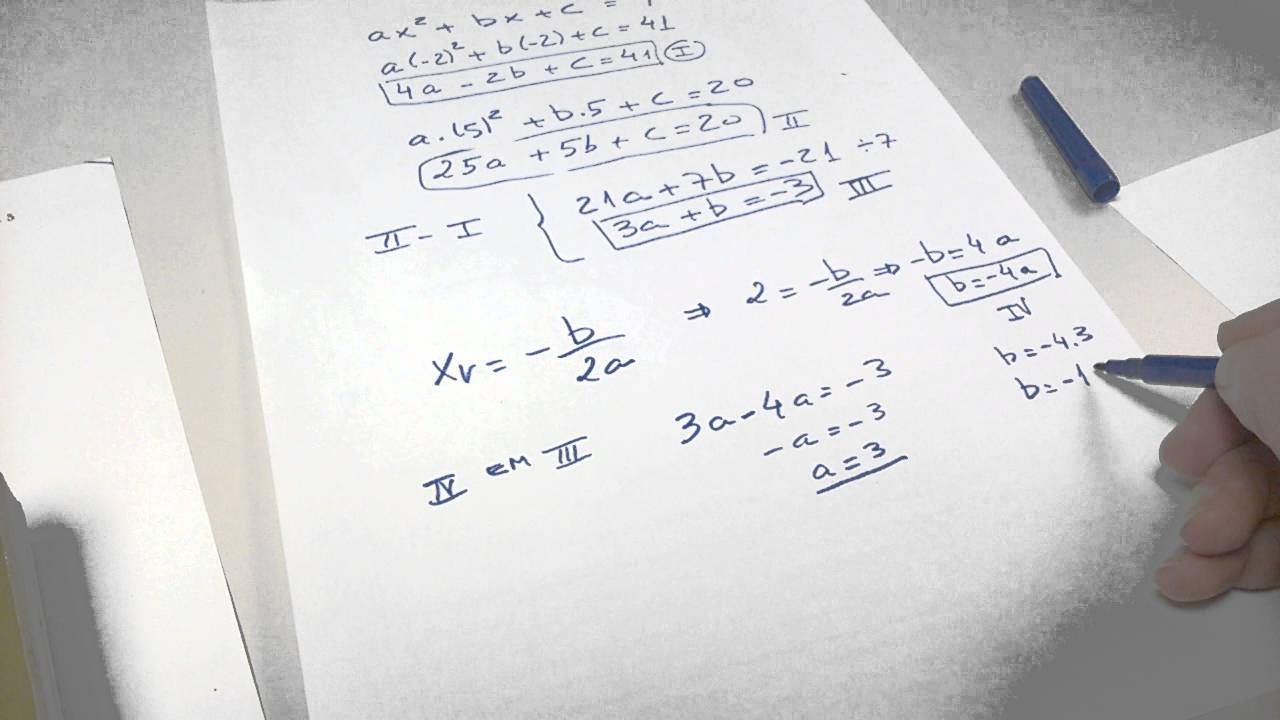 ax² + bx + c =
a(-2)² + b(-2) + c = 41
4a - 2b + c = 41 I
a.(5)² + b.5 + c = 20
25a + 5b + c = 20 II
II - I { 21a + 7b = -21 ÷7
3a + b = -3 III
Xv = -b/2a ⇒ 2 = -b/2a ⇒ -b = 4a
b = -4a
IV
b = -4.3
b = -1
IV EM III 3a - 4a = -3
-a = -3
a = 3